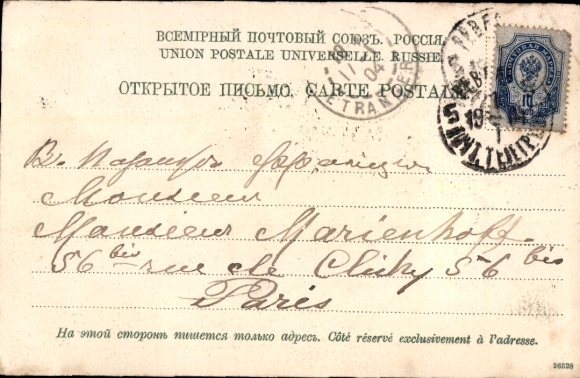 ВСЕМІРНЫЙ ПОЧТОВЫЙ СОЮЗЪ. РОССІЯ
UNION POSTALE UNIVERSELLE. RUSSIE
ОТКРЫТОЕ ПИСЬМО. CARTE POSTALE
ETRANGER
04
10
В. Парижъ Франція
Monsieur
Monsieur Marienhoff.
56 bis rue de Clichy 56 bis
Paris
На этой сторонѣ пишется только адресъ. Côté réservé exclusivement à l'adresse.
26828